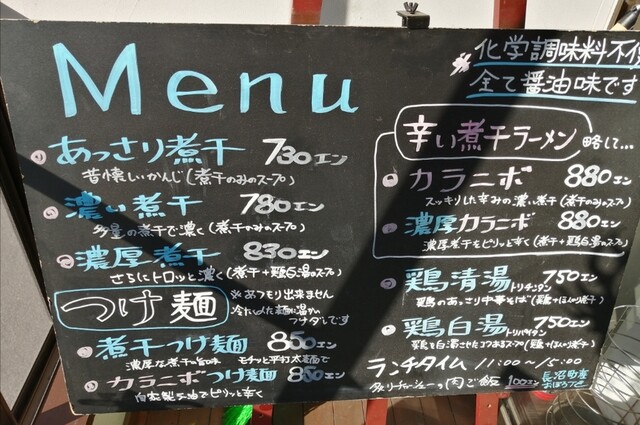 Menu
あっさり煮干 730エン
昔懐しいかんじ(煮干のみのスープ)
濃い煮干 780エン
多量の煮干で濃く(煮干のみのスープ)
濃厚煮干 830エン
さらにトロッと濃く(煮干+鶏白湯のスープ)
つけ麺
※あつモリ出来ません
冷たい〆た麺に温かい
つけダレです
煮干つけ麺 850エン
濃厚な煮干の旨味 モチっと平打太麺で
カラニボつけ麺 850エン
自家製ラー油でピリッと辛く
※化学調味料不使
全て醤油味です
辛い煮干ラーメン 略して…
カラニボ 880エン
スッキリした辛みの濃い煮干(煮干のみのスープ)
濃厚カラニボ 880エン
濃厚煮干をピリッと辛く(煮干+鶏白湯のスープ)
鶏清湯 トリチンタン 750エン
鶏のあっさり中華そば(鶏+ほんのり煮干)
鶏白湯 トリパイタン 750エン
鶏を白湯させたコクあるスープ(鶏+ほんのり煮干)
ランチタイム 11:00~15:00
肉ご飯 100エン 長沼町産
おぼろづき